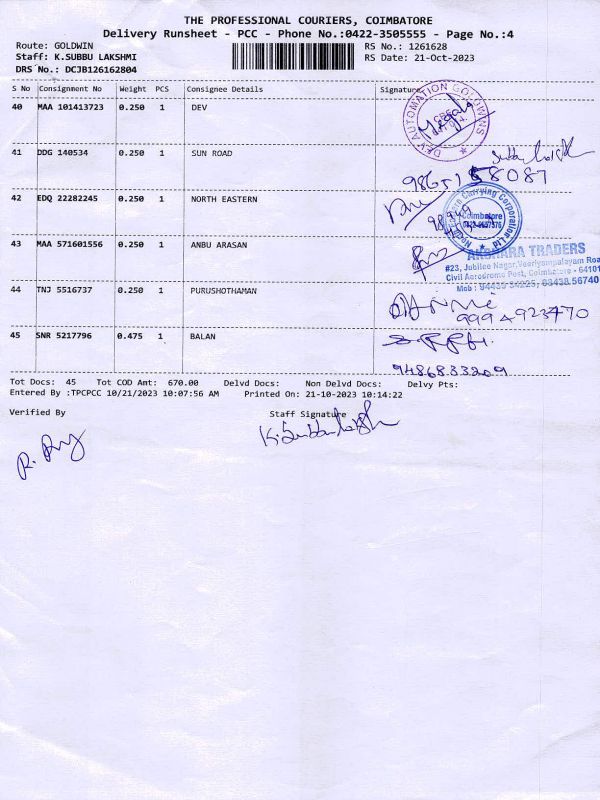 THE PROFESSIONAL COURIERS, COIMBATORE
Delivery Runsheet - PCC - Phone No.:0422-3505555 - Page No.:4
Route: GOLDWIN RS No.: 1261628
Staff: K.SUBBU LAKSHMI RS Date: 21-Oct-2023
DRS No.: DCJB126162804
S No Consignment No Weight PCS Consignee Details Signature
40 MAA 101413723 0.250 1 DEV
DEV AUTOMATION GOLDWINS
41 DDG 140534 0.250 1 SUN ROAD
42 EDQ 22282245 0.250 1 NORTH EASTERN
Carrying Corporation
Coimbatore
43 MAA 571601556 0.250 1 ANBU ARASAN
AKSHARA TRADERS
#23, Jubilee Nagar, Veeriyampalayam Road
Civil Aerodrome Post, Coimbatore - 64101
44 TNJ 5516737 0.250 1 PURUSHOTHAMAN
9994923470
45 SNR 5217796 0.475 1 BALAN
9486833209
Tot Docs: 45 Tot COD Amt: 670.00 Delvd Docs: Non Delvd Docs: Delvy Pts:
Entered By :TPCPCC 10/21/2023 10:07:56 AM Printed On: 21-10-2023 10:14:22
Verified By Staff Signature